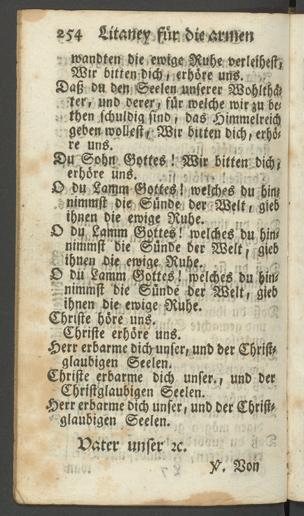 254 Litaney für die armen
wandten die ewige Ruhe verleihest,
Wir bitten dich, erhöre uns.
Daß du den Seelen unserer Wohlthä-
ter, und derer, für welche wir zu be-
then schuldig sind, das Himmelreich
geben wollest, Wir bitten dich, erhö-
re uns.
Du Sohn Gottes! Wir bitten dich,
erhöre uns.
O du Lamm Gottes! welches du hin-
nimmst die Sünde der Welt, gieb
ihnen die ewige Ruhe.
O du Lamm Gottes! welches du hin-
nimmst die Sünde der Welt, gieb
ihnen die ewige Ruhe.
O du Lamm Gottes! welches du hin-
nimmst die Sünde der Welt, gieb
ihnen die ewige Ruhe.
Christe höre uns.
Christe erhöre uns.
Herr erbarme dich unser, und der Christ-
glaubigen Seelen.
Christe erbarme dich unser., und der
Christglaubigen Seelen.
Herr erbarme dich unser, und der Christ-
glaubigen Seelen.
Vater unser ꝛc.
℣. Von